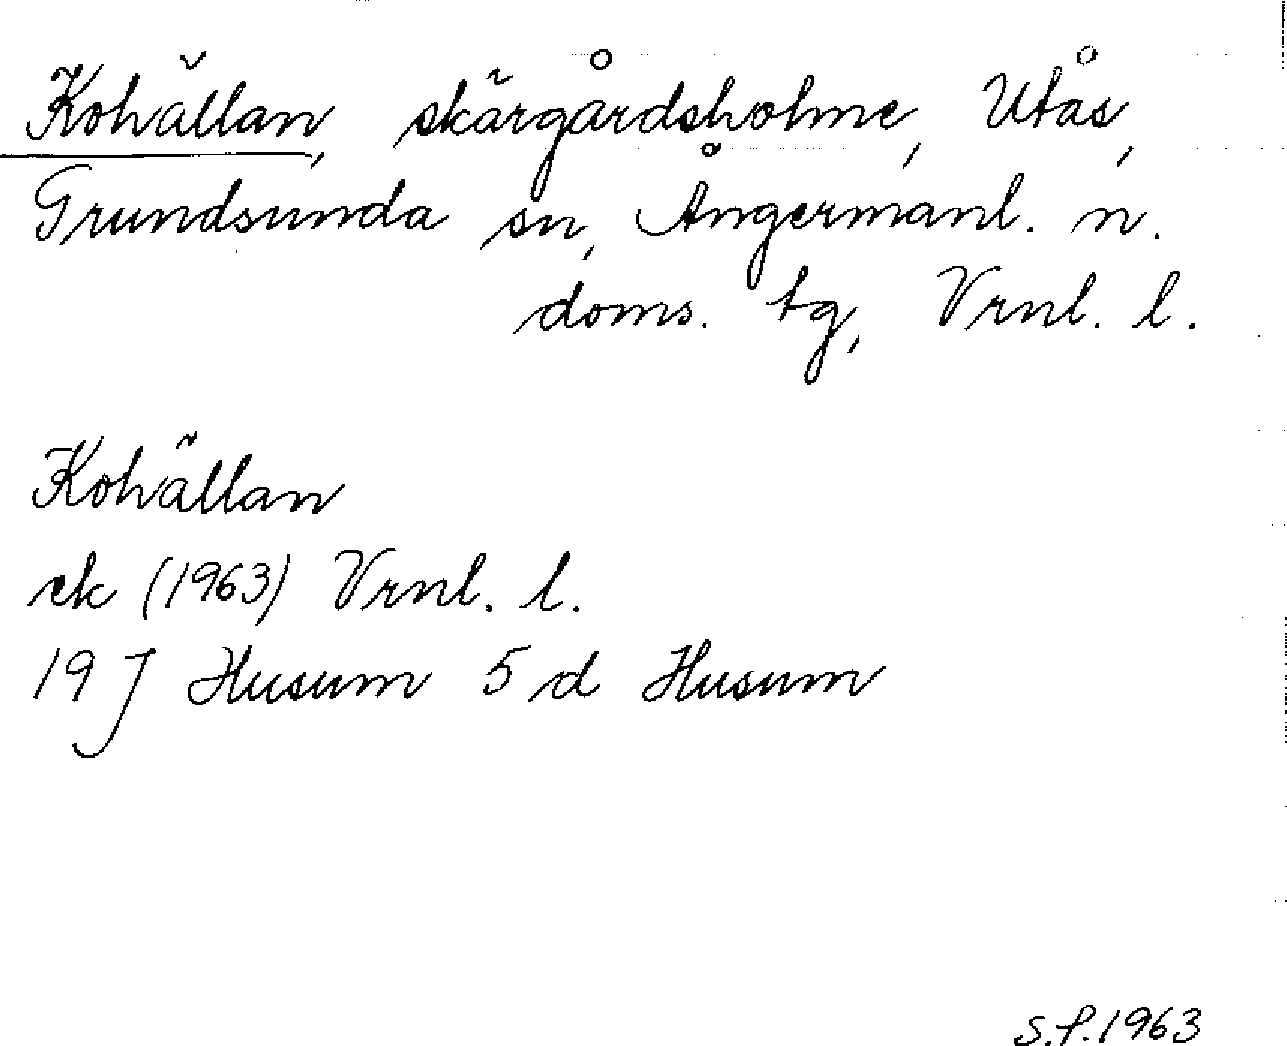 Kohällan, skärgårdsholme, Utås,
Grundsunda sn, Ångermanl. n.
doms. tg, Vrnl. l.
Kohällan
ek (1963) Vrnl. l.
19 J Husum 5 d Husum
S.P. 1963